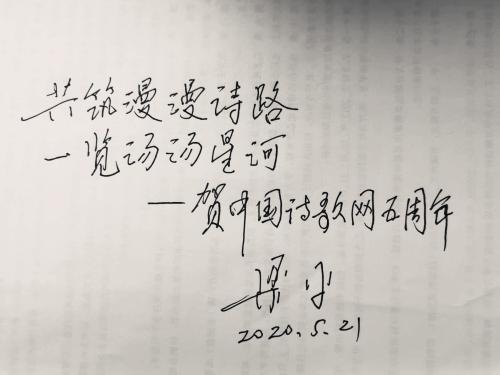 共筑漫漫诗路
一览汤汤星河
——贺中国诗歌网五周年
梁平
2020.5.21